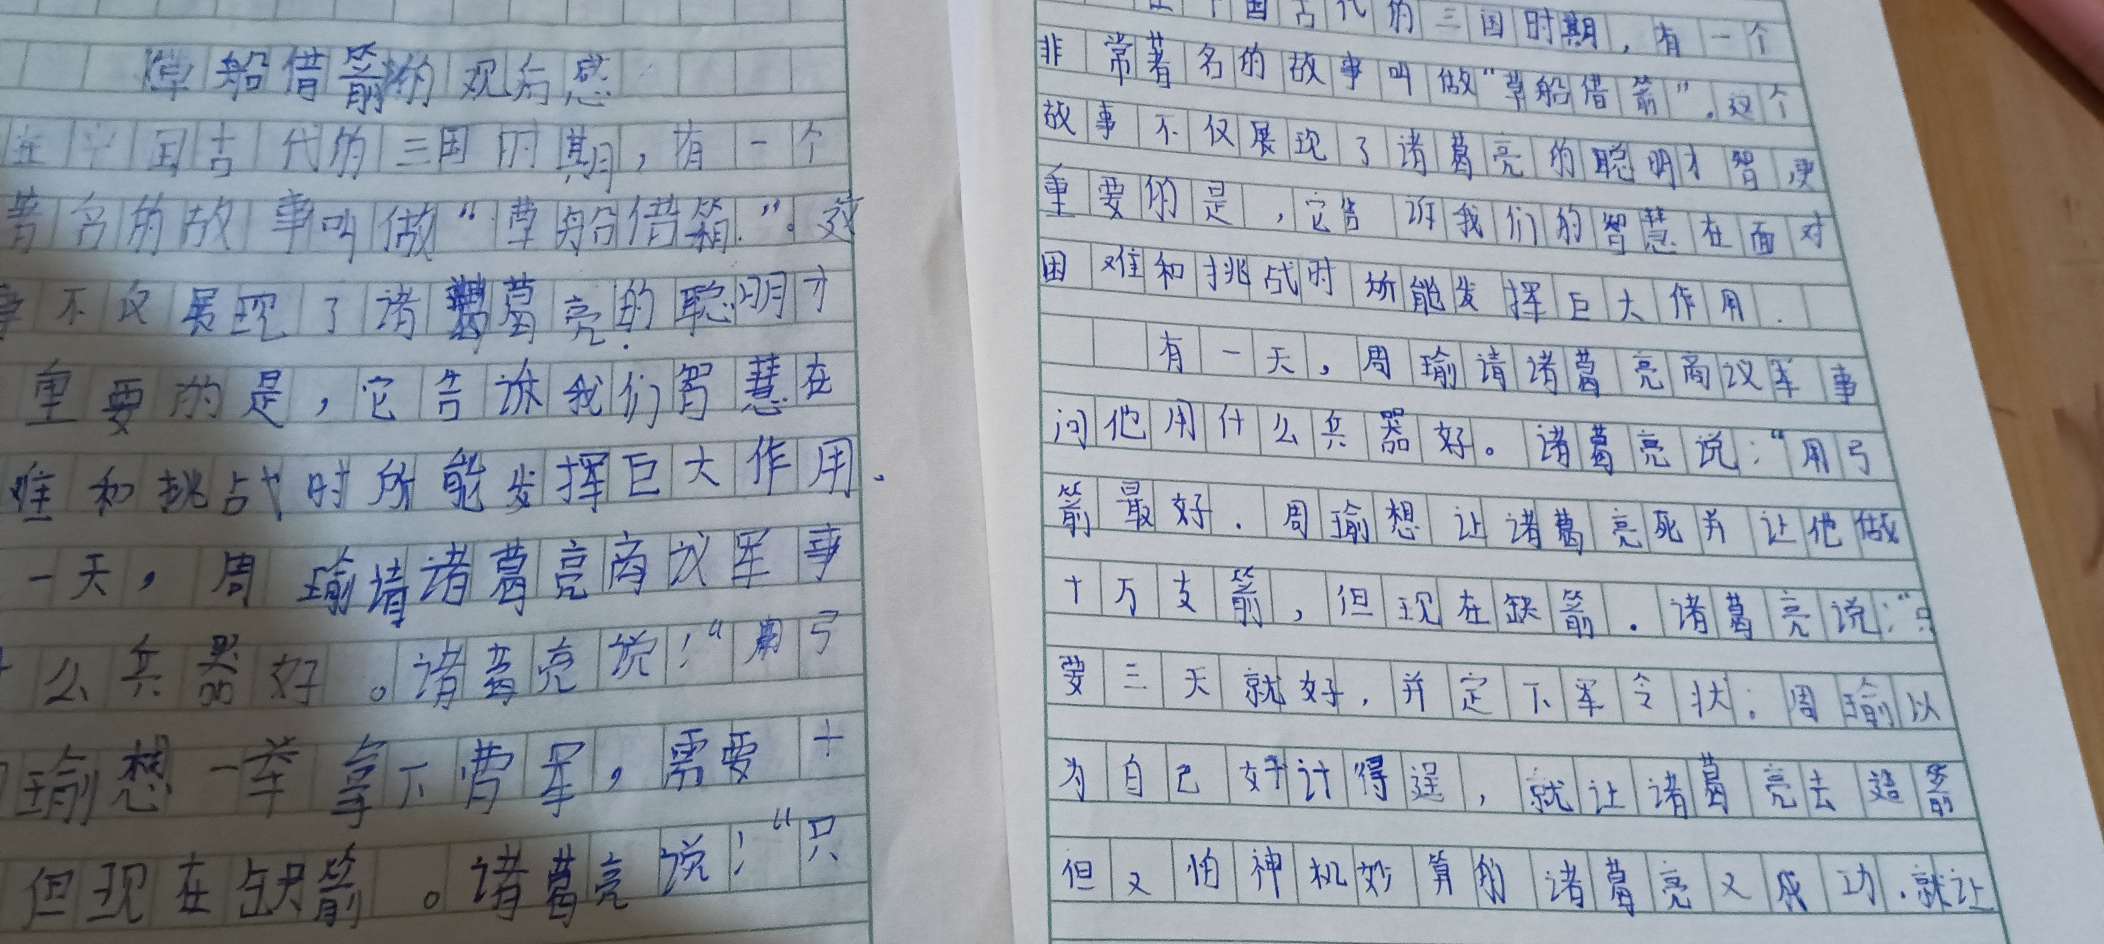 草船借箭的观后感
在中国古代的三国时期，有一个
著名的故事叫做“草船借箭”。这
事不仅展现了诸葛亮的聪明才
重要的是，它告诉我们智慧在
难和挑战时所能发挥巨大作用.
一天，周瑜请诸葛亮商议军事
么兵器好。诸葛亮说：“用弓
瑜想一举拿下曹军，需要十
但现在缺箭。诸葛亮说：“只
在中国古代的三国时期，有一个
非常著名的故事叫做“草船借箭”。这个
故事不仅展现了诸葛亮的聪明才智，更
重要的是，它告诉我们的智慧在面对
困难和挑战时所能发挥巨大作用.
有一天，周瑜请诸葛亮商议军事
问他用什么兵器好。诸葛亮说：“用弓
箭最好.周瑜想让诸葛亮死并让他做
十万支箭，但现在缺箭.诸葛亮说：“只
要三天就好，并定下军令状.周瑜以
为自己奸计得逞，就让诸葛亮去造箭
但又怕神机妙算的诸葛亮又成功.就让